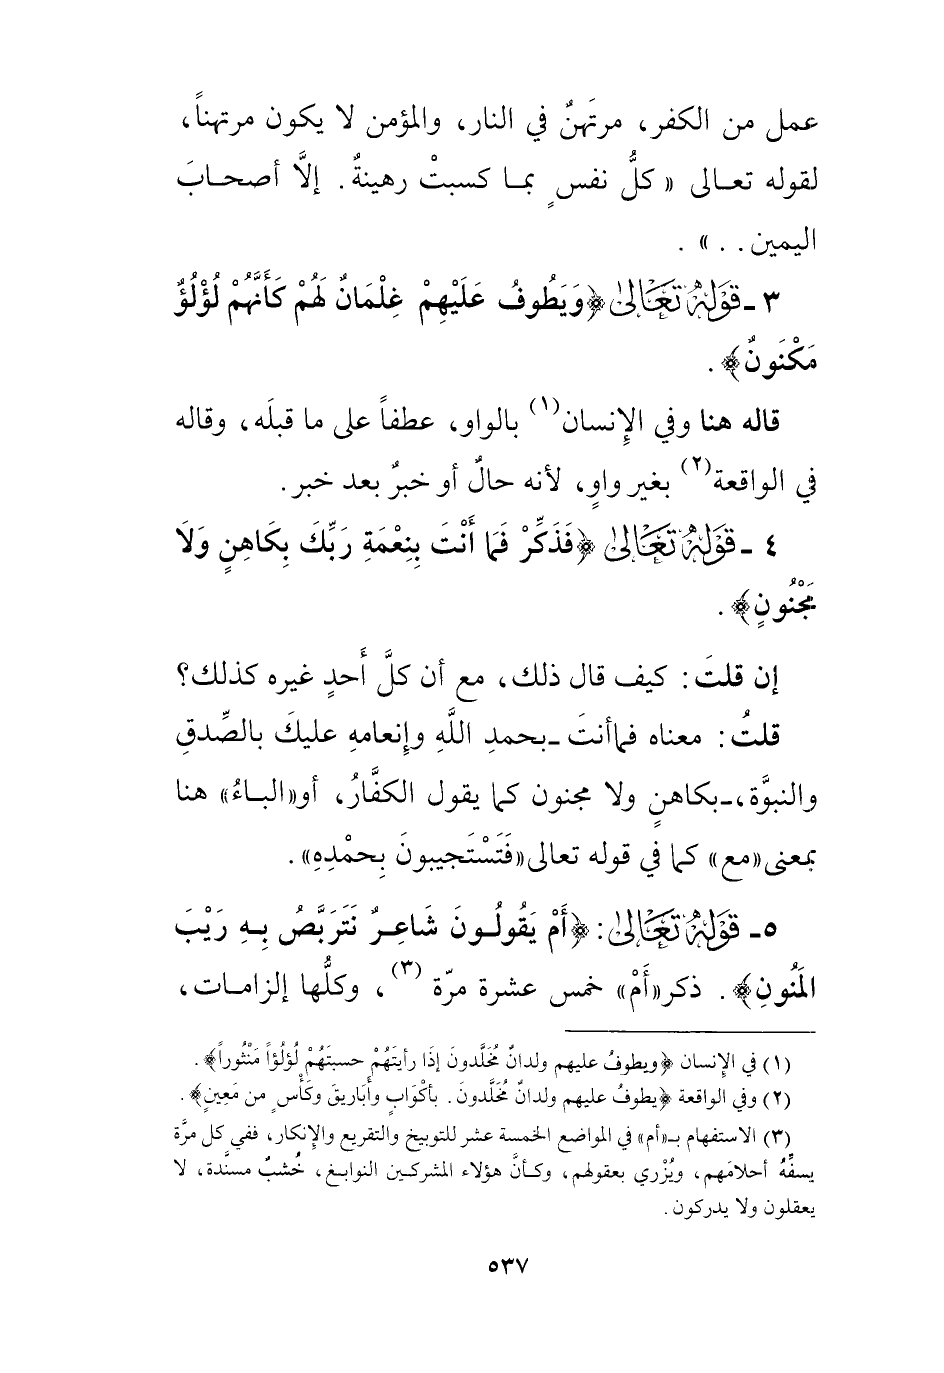 عمل من الكفر، مرتَهنٌ في النار، والمؤمن لا يكون مرتهناً،
لقوله تعـالى « كلُّ نفسٍ بمـا كسبتْ رهينةٌ. إلاَّ أصحـابَ
اليمين. . » .
٣ ـ قَوْلُهُ تَعَالىٰ ﴿وَيَطُوفُ عَلَيْهِمْ غِلْمَانٌ لَهُمْ كَأَنَّهُمْ لُؤْلُؤٌ
مَكْنَونٌ﴾ .
قاله هنا وفي الإِنسان(١) بالواو، عطفاً على ما قبلَه، وقاله
في الواقعة(٢) بغير واوٍ، لأنه حالٌ أو خبرٌ بعد خبر.
٤ ـ قَوْلُهُ تَعَالىٰ ﴿فَذَكِّرْ فَمَا أَنْتَ بِنِعْمَةِ رَبِّكَ بِكَاهِنٍ وَلَا
مَجْنُونٍ﴾ .
إن قلتَ : كيف قال ذلك، مع أن كلَّ أَحدٍ غيره كذلك؟
قلتُ : معناه فماأنتَ ـبحمدِ اللَّهِ وإِنعامهِ عليكَ بالصِّدقِ
والنبوَّة،ـبكاهنٍ ولا مجنون كما يقول الكفَّارُ، أو«البـاءُ» هنا
بمعنى«مع» كما في قوله تعالى«فَتَسْتَجيبونَ بِحمْدِهِ» .
٥ـ قَوْلُهُ تَعَالىٰ : ﴿أَمْ يَقُولُـونَ شَاعِـرٌ نَتَرَبَّصُ بِـهِ رَيْبَ
المَنُونِ﴾ . ذكر«أَمْ» خمس عشرة مرّة (٣) ، وكلُّها إلزامـات،
(١) في الإِنسان ﴿ويطوفُ عليهم ولدانٌ مُخَلَّدونَ إذَا رأيتَهُمْ حسبتَهُمْ لُؤلُؤاً مَنْثُوراً﴾ .
(٢) وفي الواقعة ﴿يطوفُ عليهم ولدانٌ مُخَلَّدونَ . بأكْوَابٍ وأَبَاريقَ وكَأْسٍ من مَعِينٍ﴾ .
(٣) الاستفهام بـ«أم» في المواضع الخمسة عشر للتوبيخ والتقريع والإِنكار، ففي كل مرَّة
يسفِّهُ أحلامَهم، ويُزْري بعقولهم، وكـأنَّ هؤلاء المشركـين النوابـغ، خُشبٌ مسنَّدة، لا
يعقلون ولا يدركون .
٥٣٧